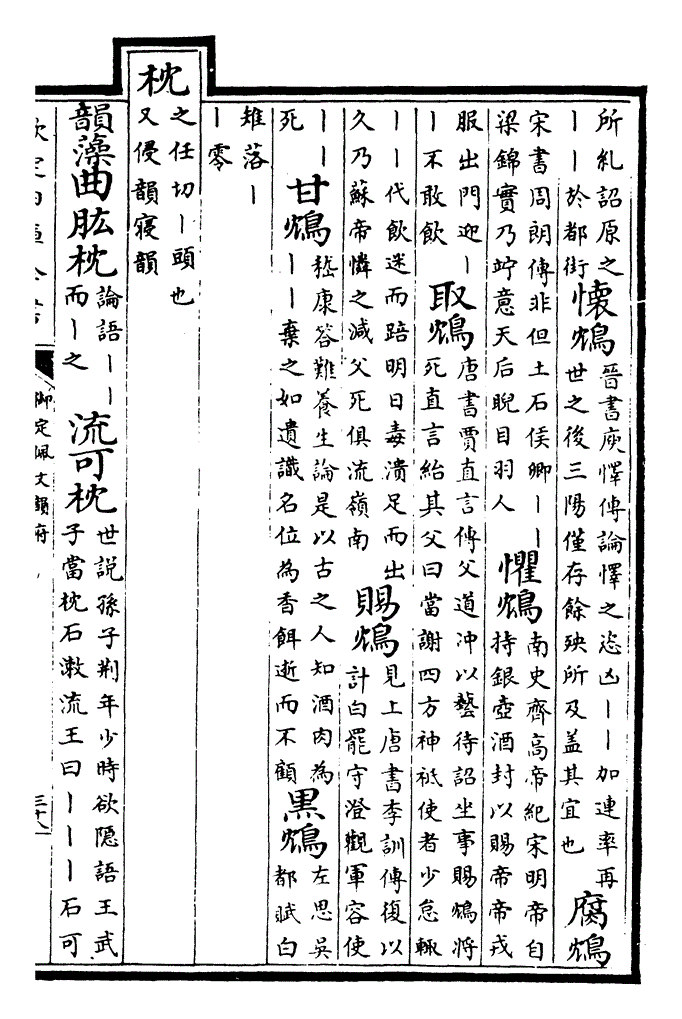 所糺詔原之丨丨於都街懷鴆晉書庾懌傳論懌之恣凶丨丨加連率再世之後三陽僅存餘殃所及盖其宜也腐鴆
宋書周朗傳非但土石侯卿丨丨梁錦實乃竚意天后睨目羽人懼鴆南史齊高帝紀宋明帝自持銀壺酒封以賜帝帝戎
服出門迎丨丨不敢飲取鴆唐書賈直言傳父道冲以藝待詔坐事賜鴆將死直言紿其父曰當謝四方神祇使者少怠輒
丨丨代飲迷而踣明日毒潰足而出久乃蘇帝憐之減父死俱流嶺南賜鴆見上唐書李訓傳復以計白罷守澄觀軍容使
丨丨死甘鴆嵇康答難養生論是以古之人知酒肉為丨丨棄之如遺識名位為香餌逝而不顧黑鴆左思吳都賦白
雉落丨丨零
枕之任切丨頭也又侵韻寢韻
韻藻曲肱枕論語丨丨而丨之流可枕世説孫子荆年少時欲隠語王武子當枕石漱流王曰丨丨丨石可
欽定四庫全書
御定佩文韻府
三十八